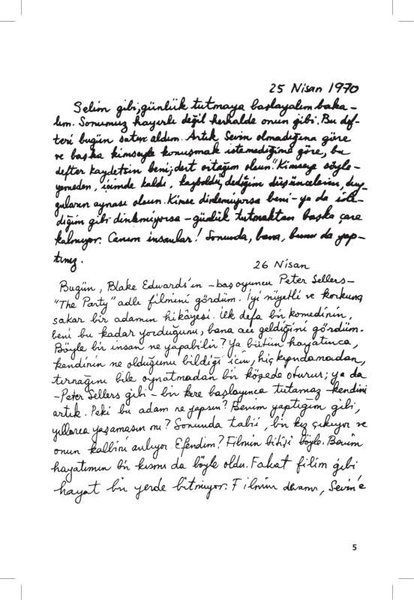 25 Nisan 1970
Selim gibi, günlük tutmaya başlayalım baka-
lım. Sonumuz hayırlı değil herhalde onun gibi. Bu def-
teri bugün satın aldım. Artık Sevin olmadığına göre
ve başka kimseyle konuşmak istemediğime göre, bu
defter kaydetsin beni; dert ortağım olsun. "Kimseye söyle-
yemeden, içimde kaldı, kayboldu, dediğim düşüncelerin, duy-
guların aynası olsun. Kimse dinlemiyorsa beni - ya da iste-
diğim gibi dinlemiyorsa - günlük tutmaktan başka çare
kalmıyor. Canım insanlar! Sonunda, bana, bunu da yap-
tınız.
26 Nisan
Bugün, Blake Edwards'ın - başoyuncu Peter Sellers -
"The Party" adlı filmini gördüm. İyi niyetli ve korkunç
sakar bir adamın hikâyesi. İlk defa bir komedinin,
beni bu kadar yorduğunu, bana acı geldiğini gördüm.
Böyle bir insan ne yapabilir? Ya bütün hayatınca,
kendinin ne olduğunu bildiği için, hiç kıpırdamadan,
tırnağını bile oynatmadan bir köşede oturur; ya da
-Peter Sellers gibi- bir kere başlayınca tutamaz kendini
artık. Peki bu adam ne yapsın? Benim yaptığım gibi,
yıllarca yaşamasın mı? Sonunda tabii, bir kız çıkıyor ve
onun kalbini anlıyor Efendim? Filmin bitişi böyle. Benim
hayatımın bir kısmı da böyle oldu. Fakat filim gibi
hayat bir yerde bitmiyor. Filmin devamı, Sevin'e
5